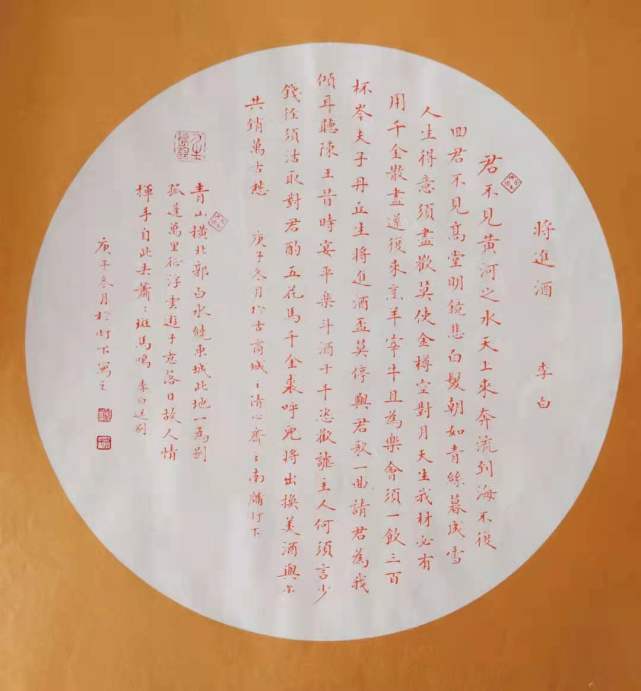 將進酒 李白
君不見黃河之水天上來奔流到海不復
回君不見高堂明鏡悲白髮朝如青絲暮成雪
人生得意須盡歡莫使金樽空對月天生我材必有
用千金散盡還復來烹羊宰牛且為樂會須一飲三百
杯岑夫子丹丘生將進酒盃莫停與君歌一曲請君為我
傾耳聽陳王昔時宴平樂斗酒十千恣歡謔主人何須言少
錢徑須沽取對君酌五花馬千金裘呼兒將出換美酒與尒
共銷萬古愁 庚子冬月於古商城之清心齋之南牖灯下
青山橫北郭白水繞東城此地一為別
孤蓬萬里征浮雲遊子意落日故人情
揮手自此去蕭々班馬鳴 李白送別
庚子冬月於灯下寫之